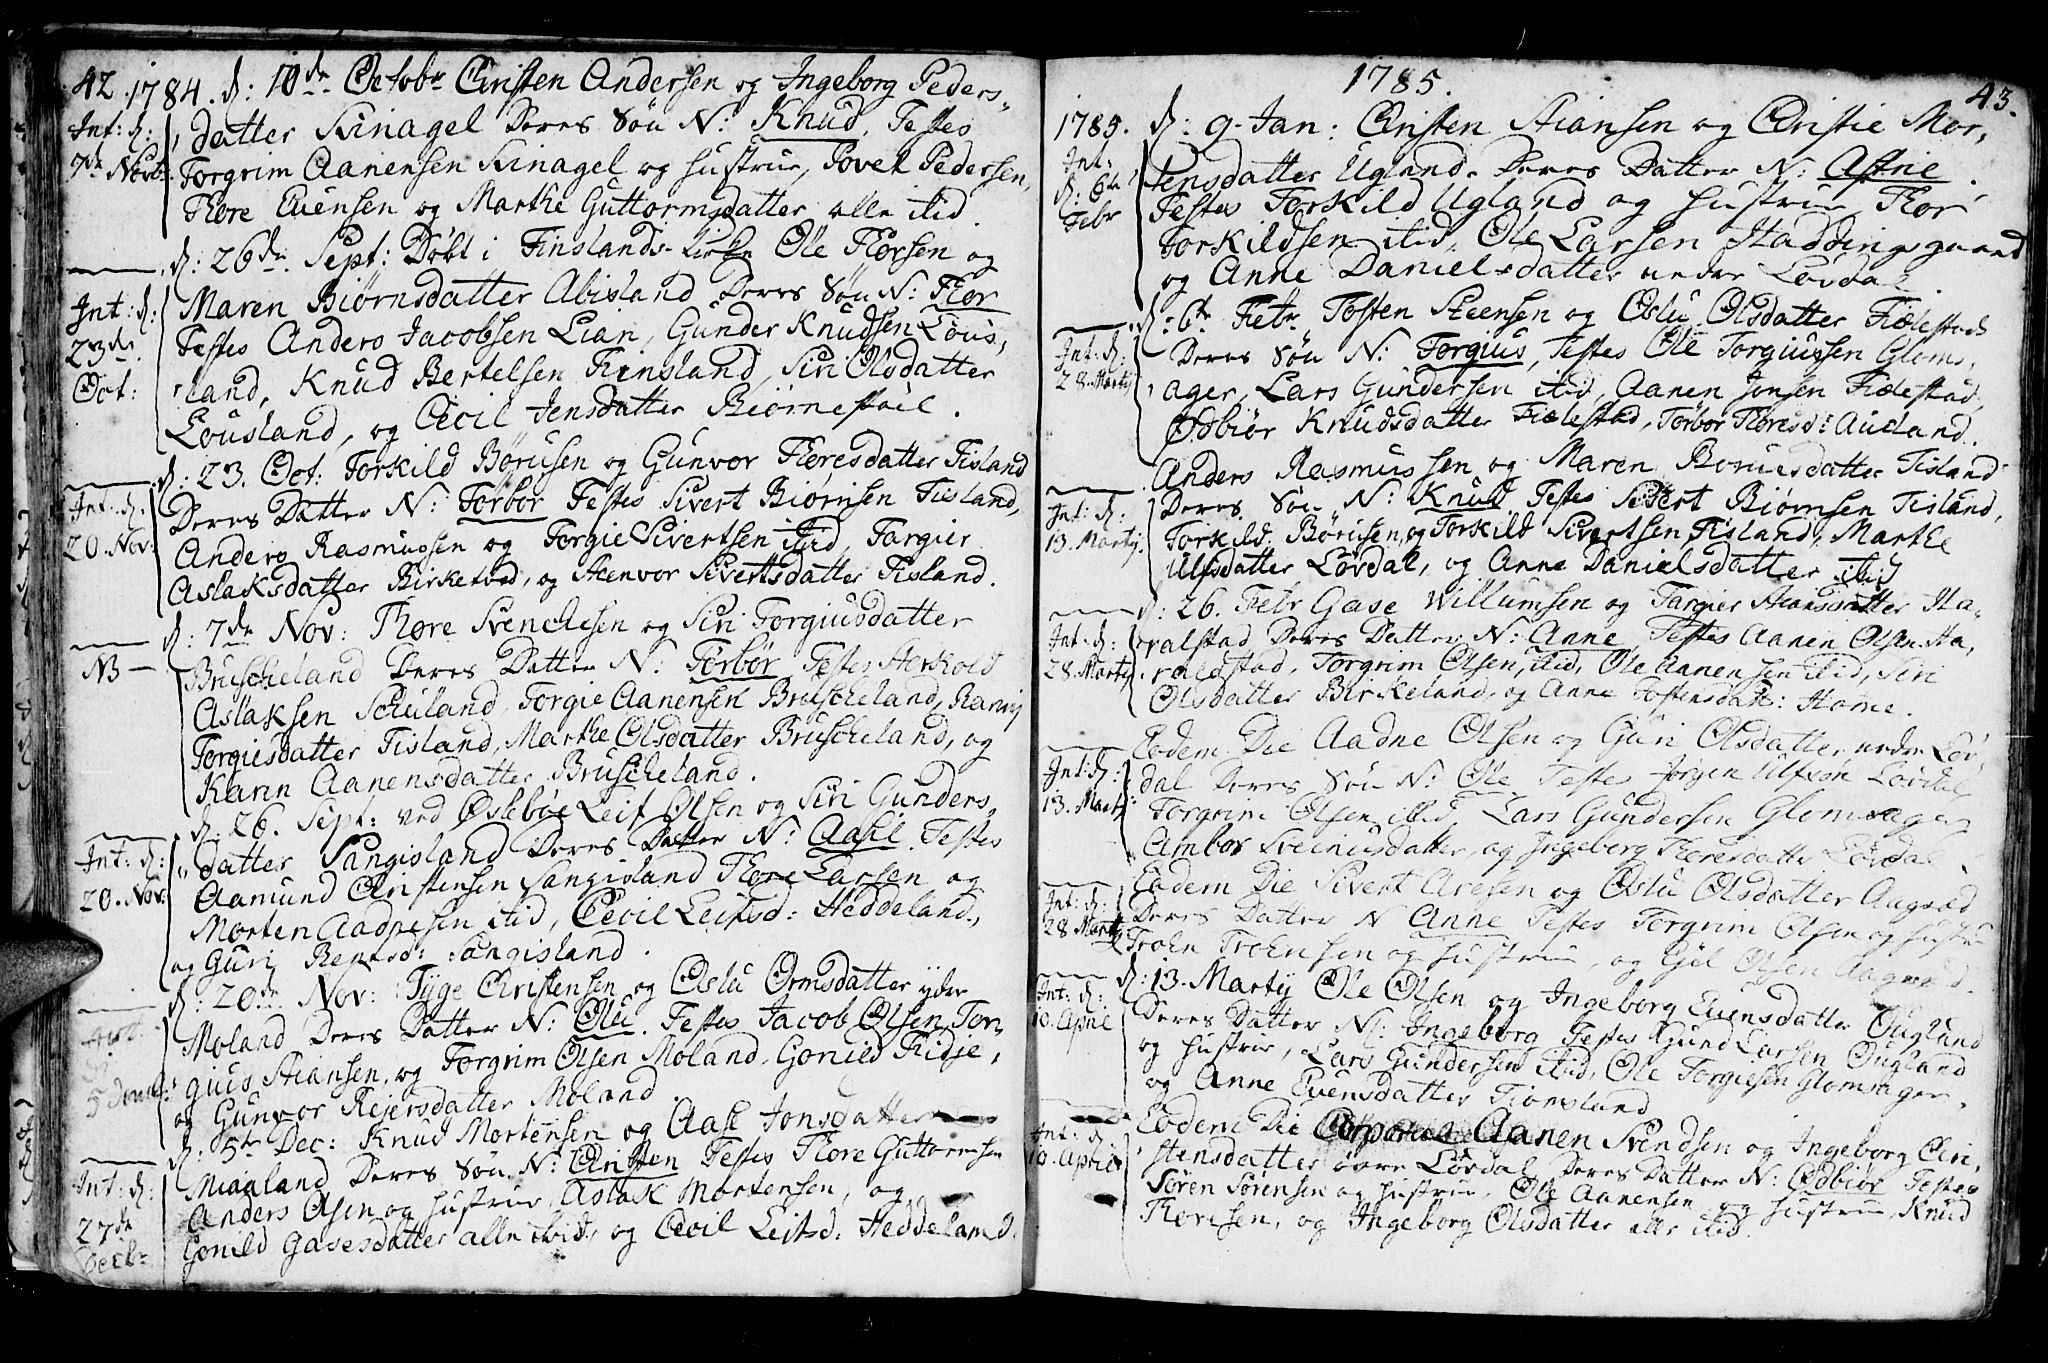 42. 1784. d: 10de Octobr Christen Andersen og Ingeborg Peders-
Int: d:
7de Novb:
datter Kinagel Deres Søn N: Knud, Testes
Torgrim Aanensen Kinagel og hustrue, Povel Pedersen,
Thore Evensen og Marthe Guttormsdatter alle ibid.
d: 26de Sept: Døbt i Finslands-Kirke Ole Thorsen og
Int: d:
23de
Oct:
Maren Biørnsdatter Abisland Deres Søn N: Thor
Testes Anders Jacobsen Lian, Gunder Knudsen Lous,
land, Knud Bertelsen Finsland, Siri Olsdatter
Lousland, og Cecil Jensdatter Biørnestøel.
d: 23. Oct: Torkild Børusen og Gunvor Thoresdatter Tisland
Int: d:
20. Nov:
Deres Datter N: Torbor Testes Sivert Biørnsen Tisland,
Anders Rasmussen og Torgie Sivertsen ibid, Targier
Aslaksdatter Birketvad, og Stenvor Sivertsdatter Tisland.
d: 7de Nov: Thore Svenchesen og Siri Torgiusdatter
NB —
Bruscheland Deres Datter N: Torbør Testes Sterkold
Aslaksen Scheiland, Torgie Aanensen Bruscheland, Ranvj
Torgiesdatter Tisland, Marthe Olsdatter Bruscheland, og
Karin Aanensdatter Bruscheland.
d: 26. Sept: ved Øslebøe Leif Olsen og Siri Gunders-
Int: d:
20. Nov:
datter Sangisland Deres Datter N: Aasil. Testes
Aamund Christensen Sangisland Thore Larsen og
Morten Aadnesen ibid, Cecil Leifsd: Heddeland.,
og Guri Bentsd: Sangisland.
d: 20de Nov: Tyge Christensen og Oslu Ormsdatter ydre
Moland Deres Datter N: Olu. Testes Jacob Olsen, Tor,
gius Stiansen, og Torgrim Olsen Moland, Gonild Kidje,
og Gunvor Rejersdatter Moland.
d: 5te Dec: Knud Mortensen og Aase Jonsdatter
Int: d:
27de
Decbr.
Miaaland Deres Søn N: Christen Testes Thore Guttormsen
Anders Olsen og hustrue, Aslak Mortensen, og
Gonild Gavesdatter alle ibid, og Cecil Leifsd: Heddeland.
1785.
43.
1785. d: 9. Jan: Christen Stiansen og Christie Mor,
Int:
d: 6te
Febr
tensdatter Ugland. Deres Datter N: Astrie.
Testes Torkild Ugland og hustrue Thor
Torkildsen ibid, Ole Larsen Staddingsgaard
og Anne Danielsdatter nedre Løvdal.
d: 6te Febr Tosten Steensen og Oslu Olsdatter Fielestad
Int: d:
28. Martij
Deres Søn N: Torgius, Testes Ole Torgiussen Gloms,
ager, Lars Gundersen ibid, Aanen Jonsen Fielestad,
Odbiør Knudsdatter Fielestad, Torbor Thoresd: Auland.
Anders Rasmussen og Maren Boruesdatter Tisland
Int: d:
13. Martij.
Deres Søn N: Knud Testes Sivert Biørnsen Tisland,
Torkild Børusen, og Torkild Sivertsen Tisland, Marthe
Ulfsdatter Løvdal, og Anne Danielsdatter ibid
d: 26. Febr Gase Willumsen og Targier Stiansdatter Ha,
Int: d:
28. Martij.
ralstad Deres Datter N: Anne, Testes Aanen Olsen Ha,
raldstad, Torgrim Olsen, ibid, Ole Aanensen ibid, Siri
Olsdatter Birkeland, og Anne Tostensdatt: Home.
Eodem Die Aadne Olsen og Guri Olsdatter nedre Løv,
Int: d:
13. Martij
dal Deres Søn N: Ole Testes Jørgen Ulfsøn Løvdal
Torgrim Olsen ibid, Lars Gundersen Glomsager
Ambor Sveinusdatter, og Ingeborg Thoresdatter Løvdal
Eodem Die Sivert Aresen og Oslu Olsdatter Aagsæd
Int: d:
28 Martij
Deres Datter N Anne Testes Torgrim Olsen og hustru
Troen Troensen og hustrue, og Gjøl Olsen Aagsæd.
d: 13. Martij Ole Olsen og Ingeborg Evensdatter Ougland
Int: d:
10. April
Deres Datter N: Ingeborg Testes Gund Larsen Ougland
og hustrue, Lars Gundersen ibid, Ole Torgiesen Glomsager,
og Anne Evensdatter Fiomsland
Eodem Die Corporal Aanen Svendsen og Ingeborg Chri,
Int: d:
10. April
stensdatter øvre Løvdal Deres Datter N: Odbiør Testes
Søren Sørensen og hustrue, Ole Aanensen og hustrue, Knud
Thoresen, og Ingeborg Olsdatter alle ibid.